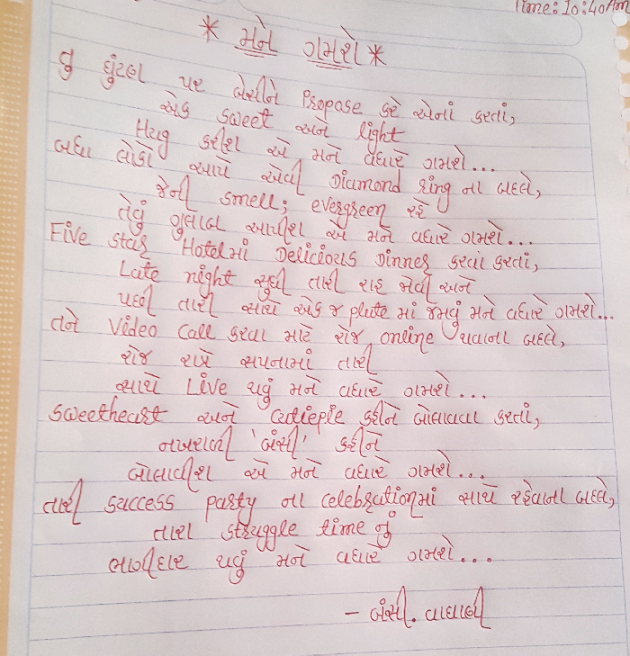 Time: 10:40 Am
* મને ગમશે *
તુ ઘુંટણ પર બેસીને Propose કરે એનાં કરતાં,
એક sweet અને light
Hug કરીશ એ મને વધારે ગમશે...
બધા લોકો આપે એવી Diamond ring ના બદલે,
જેની smell; evergreen રહે
તેવું ગુલાબ આપીશ એ મને વધારે ગમશે...
Five star Hotelમાં Delicious Dinner કરવા કરતાં,
Late night સુધી તારી રાહ જોવી અને
પછી તારી સાથે એક જ plate માં જમવું મને વધારે ગમશે...
તને Video Call કરવા માટે રોજ online થવાના બદલે,
રોજ રાત્રે સપનામાં તારી
સાથે Live થવું મને વધારે ગમશે...
sweetheart અને cutiepie કહીને બોલાવવા કરતાં,
નખરાળી 'બંસી' કહીને
બોલાવીશ એ મને વધારે ગમશે...
તારી success party ના celebrationમાં સાથે રહેવાના બદલે,
તારા struggle time નું
ભાગીદાર થવું મને વધારે ગમશે...
- બંસી. વાઘાણી